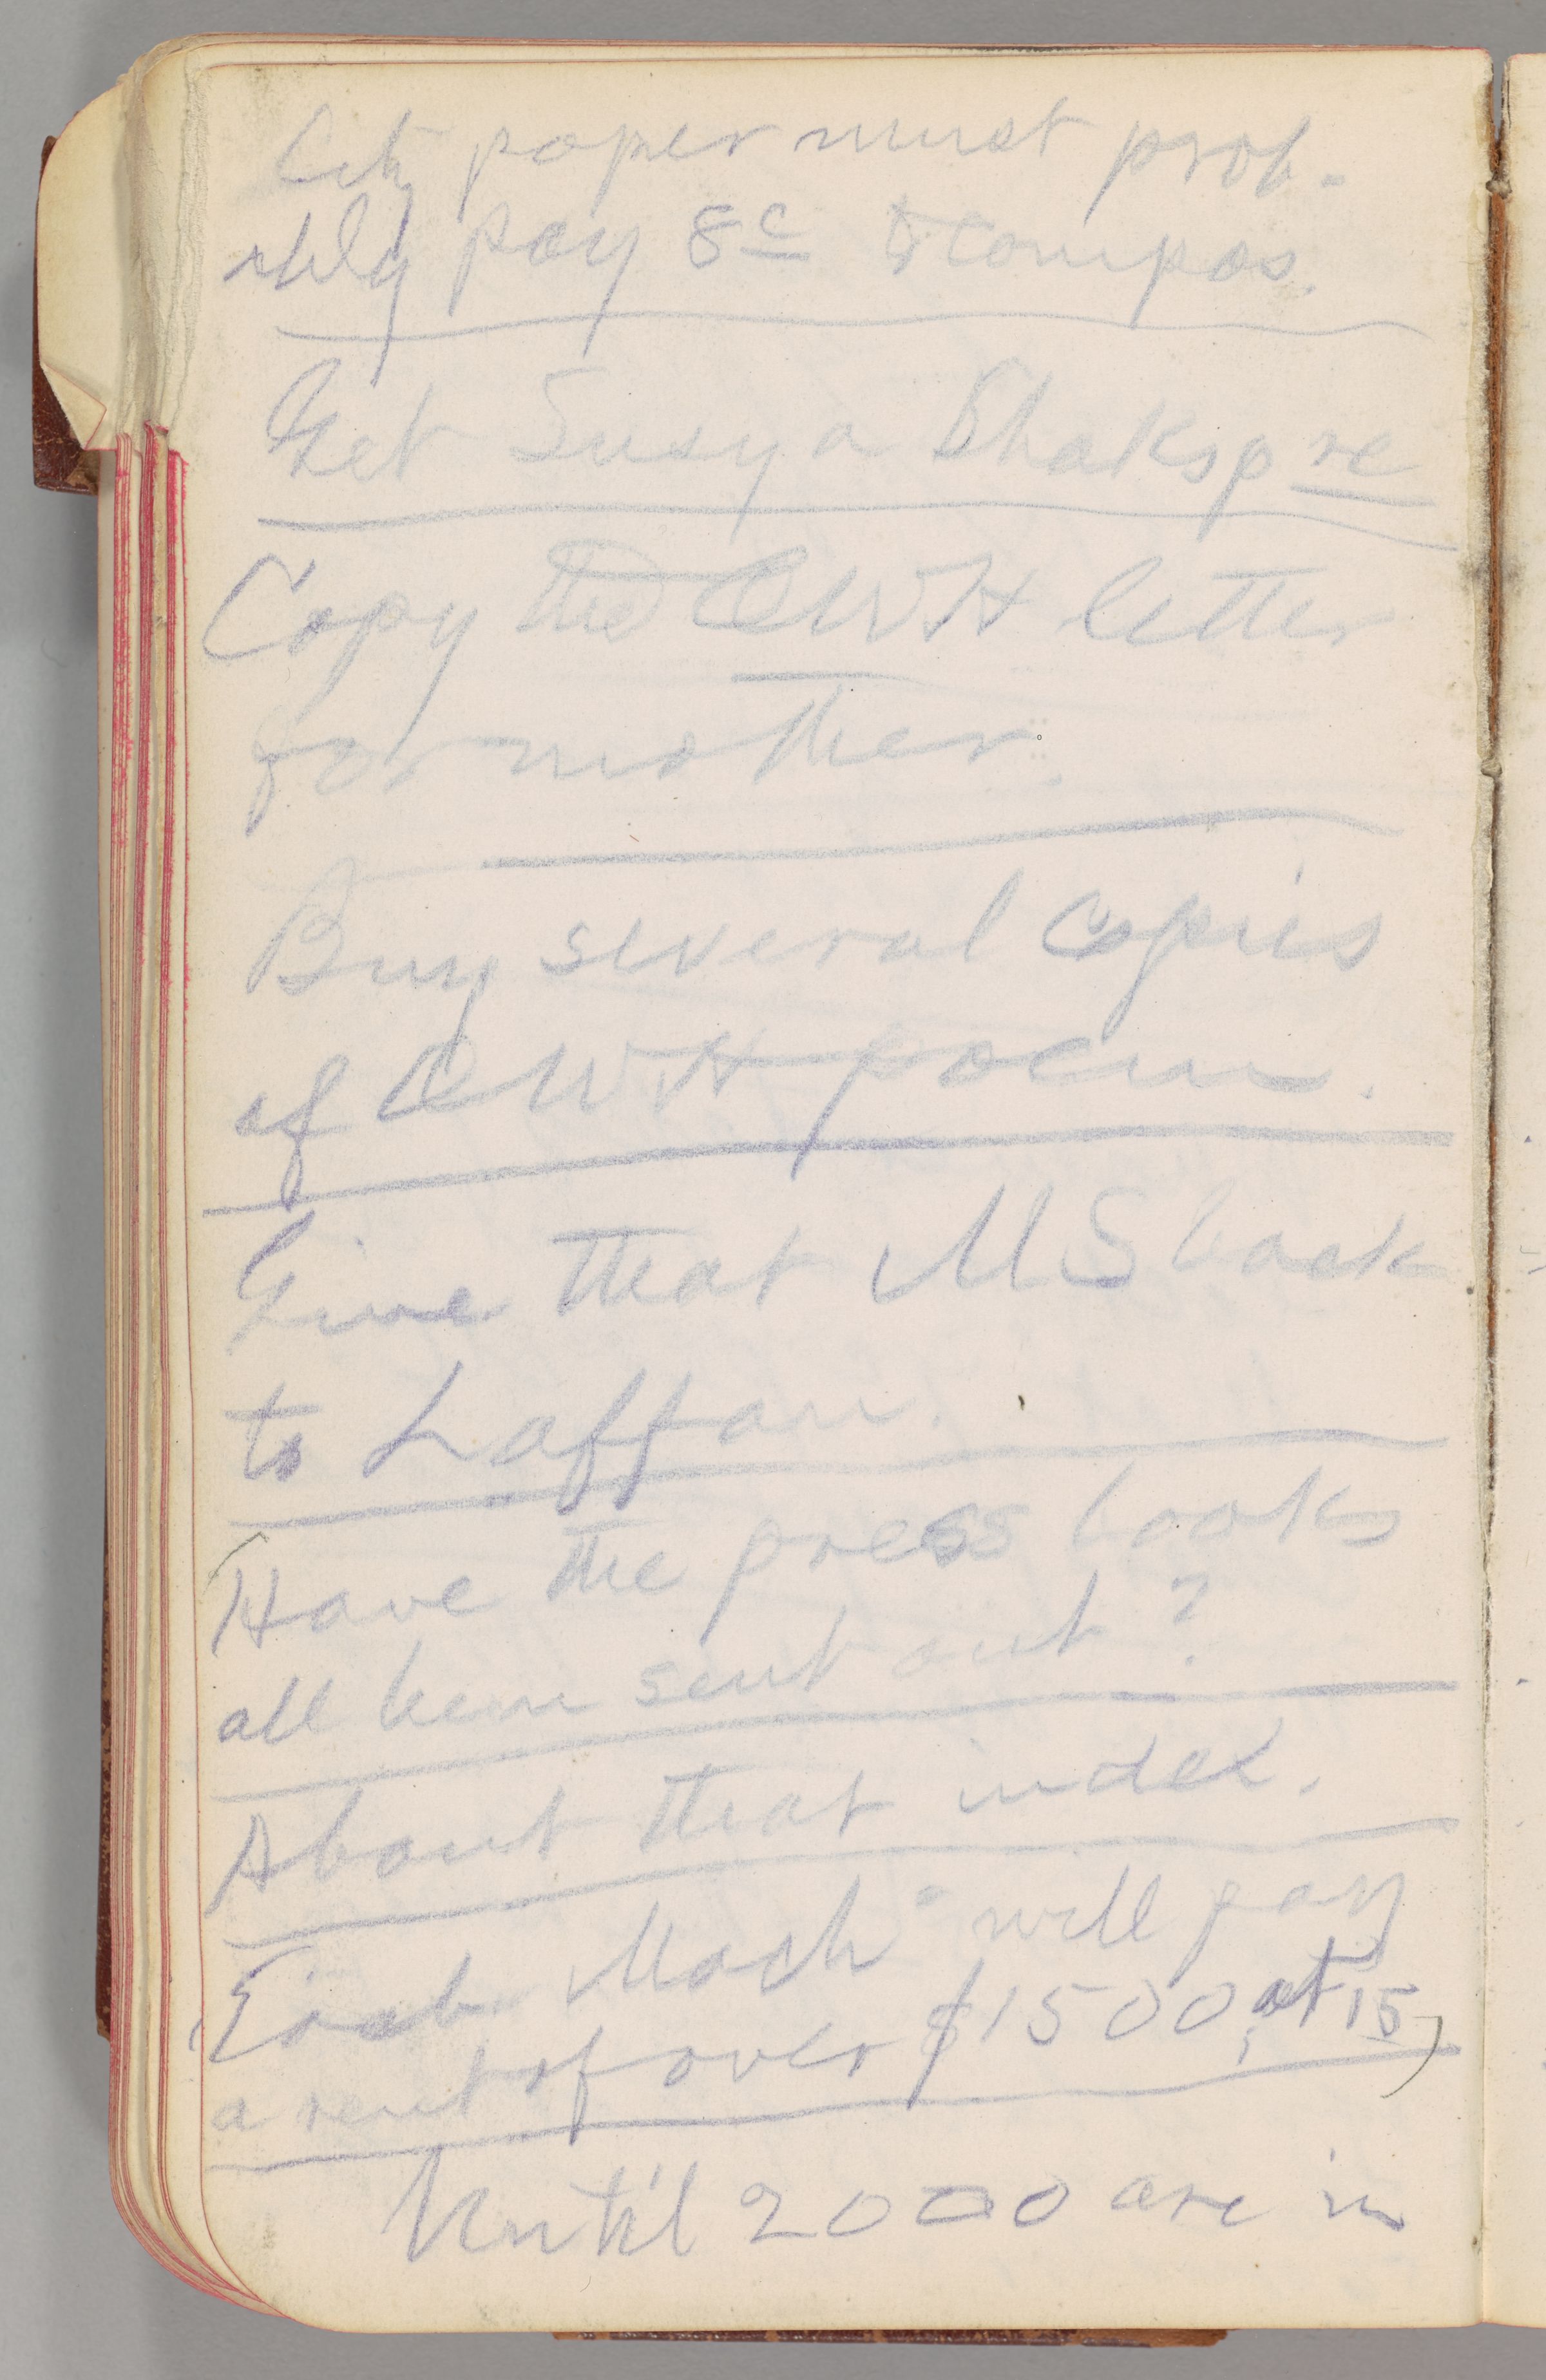 City paper must prob-
ably pay 8c to compos.
Get Susy a Shakspre
Copy the OWH letter
for mother.
Buy several copies
of OWH poem.
Give that MS back
to Laffan.
(Have the press books
all been sent out?
About that index.
Each Mach will pay
a rent of over $1500, at 15)
Until 2000 are in